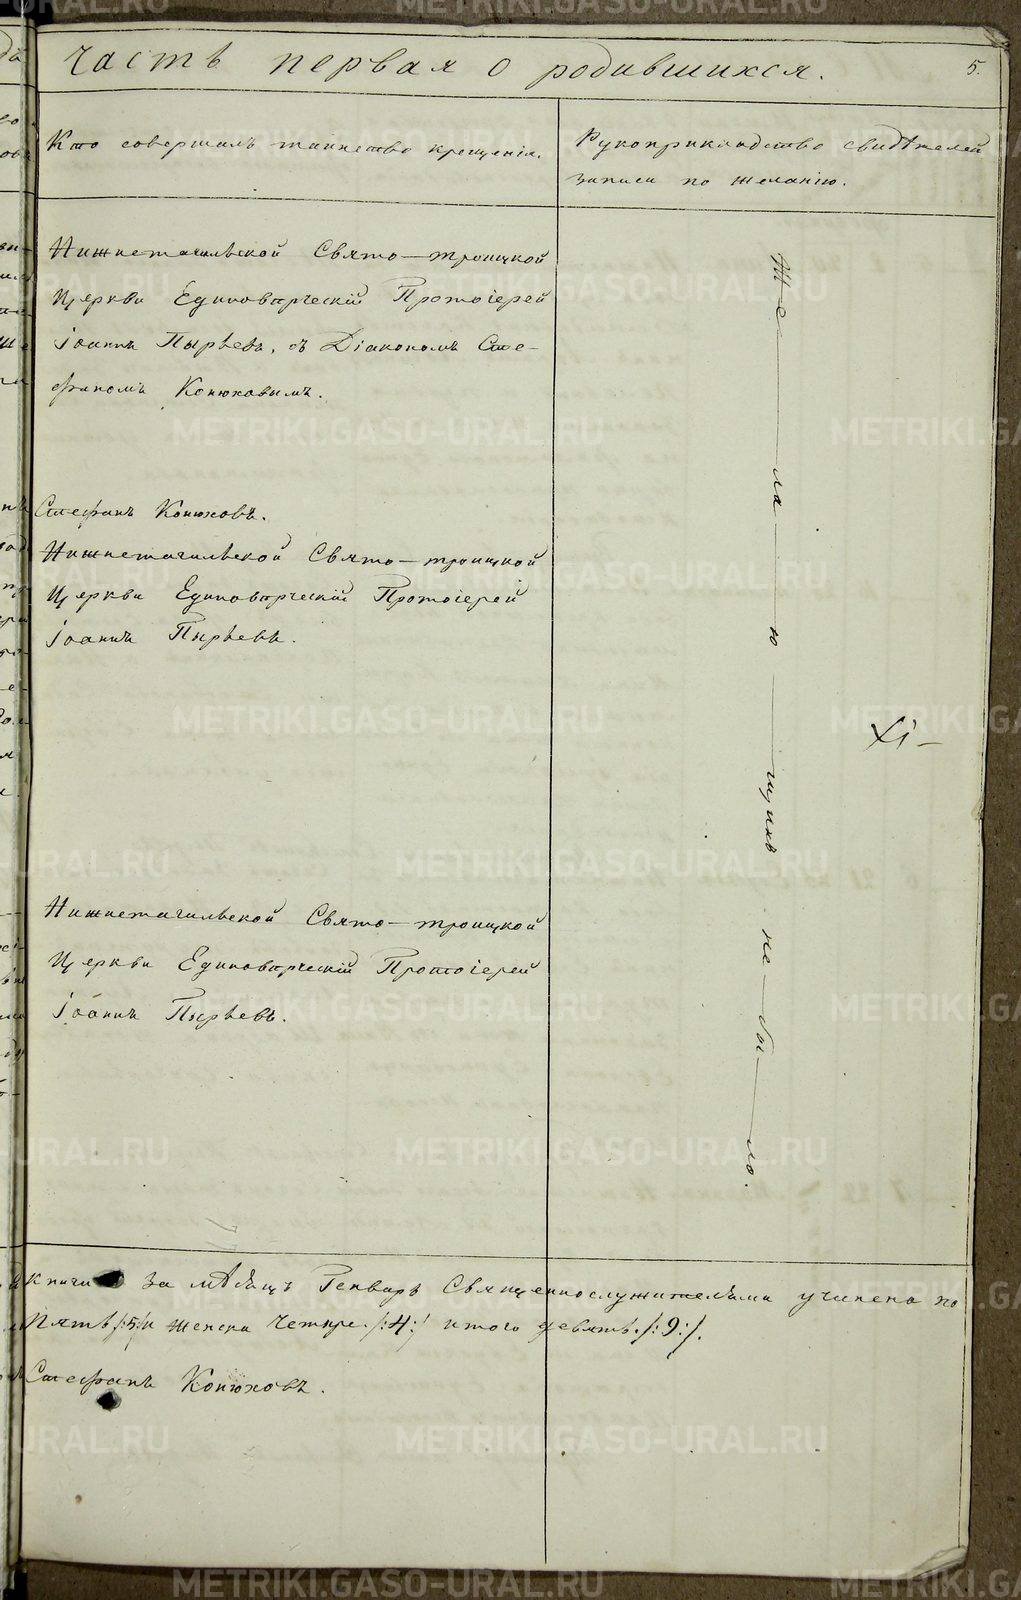 Часть первая о родившихся.
5.
Кто совершалъ таинство крещенія.
Рукоприкладство свидѣтелей
записи по желанію.
Нижнетагильской Свято-троицкой
Церкви Единовѣрческій Протоіерей
Іоаннъ Пырьевъ, съ Діакономъ Сте-
фаномъ Конюховымъ.
Стефанъ Конюховъ.
Нижнетагильской Свято-троицкой
Церкви Единовѣрческій Протоіерей
Іоаннъ Пырьевъ.
Нижнетагильской Свято-троицкой
Церкви Единовѣрческій Протоіерей
Іоаннъ Пырьевъ.
Же—ла—ю—щихъ не—бы—ло.
за мѣсяцъ Генварь Священнослужителями учинено по
Пять /:5:/ и женска Четыре /:4:/ итого девять /:9:/.
Стефанъ Конюховъ.
METRIKI.GASO-URAL.RU